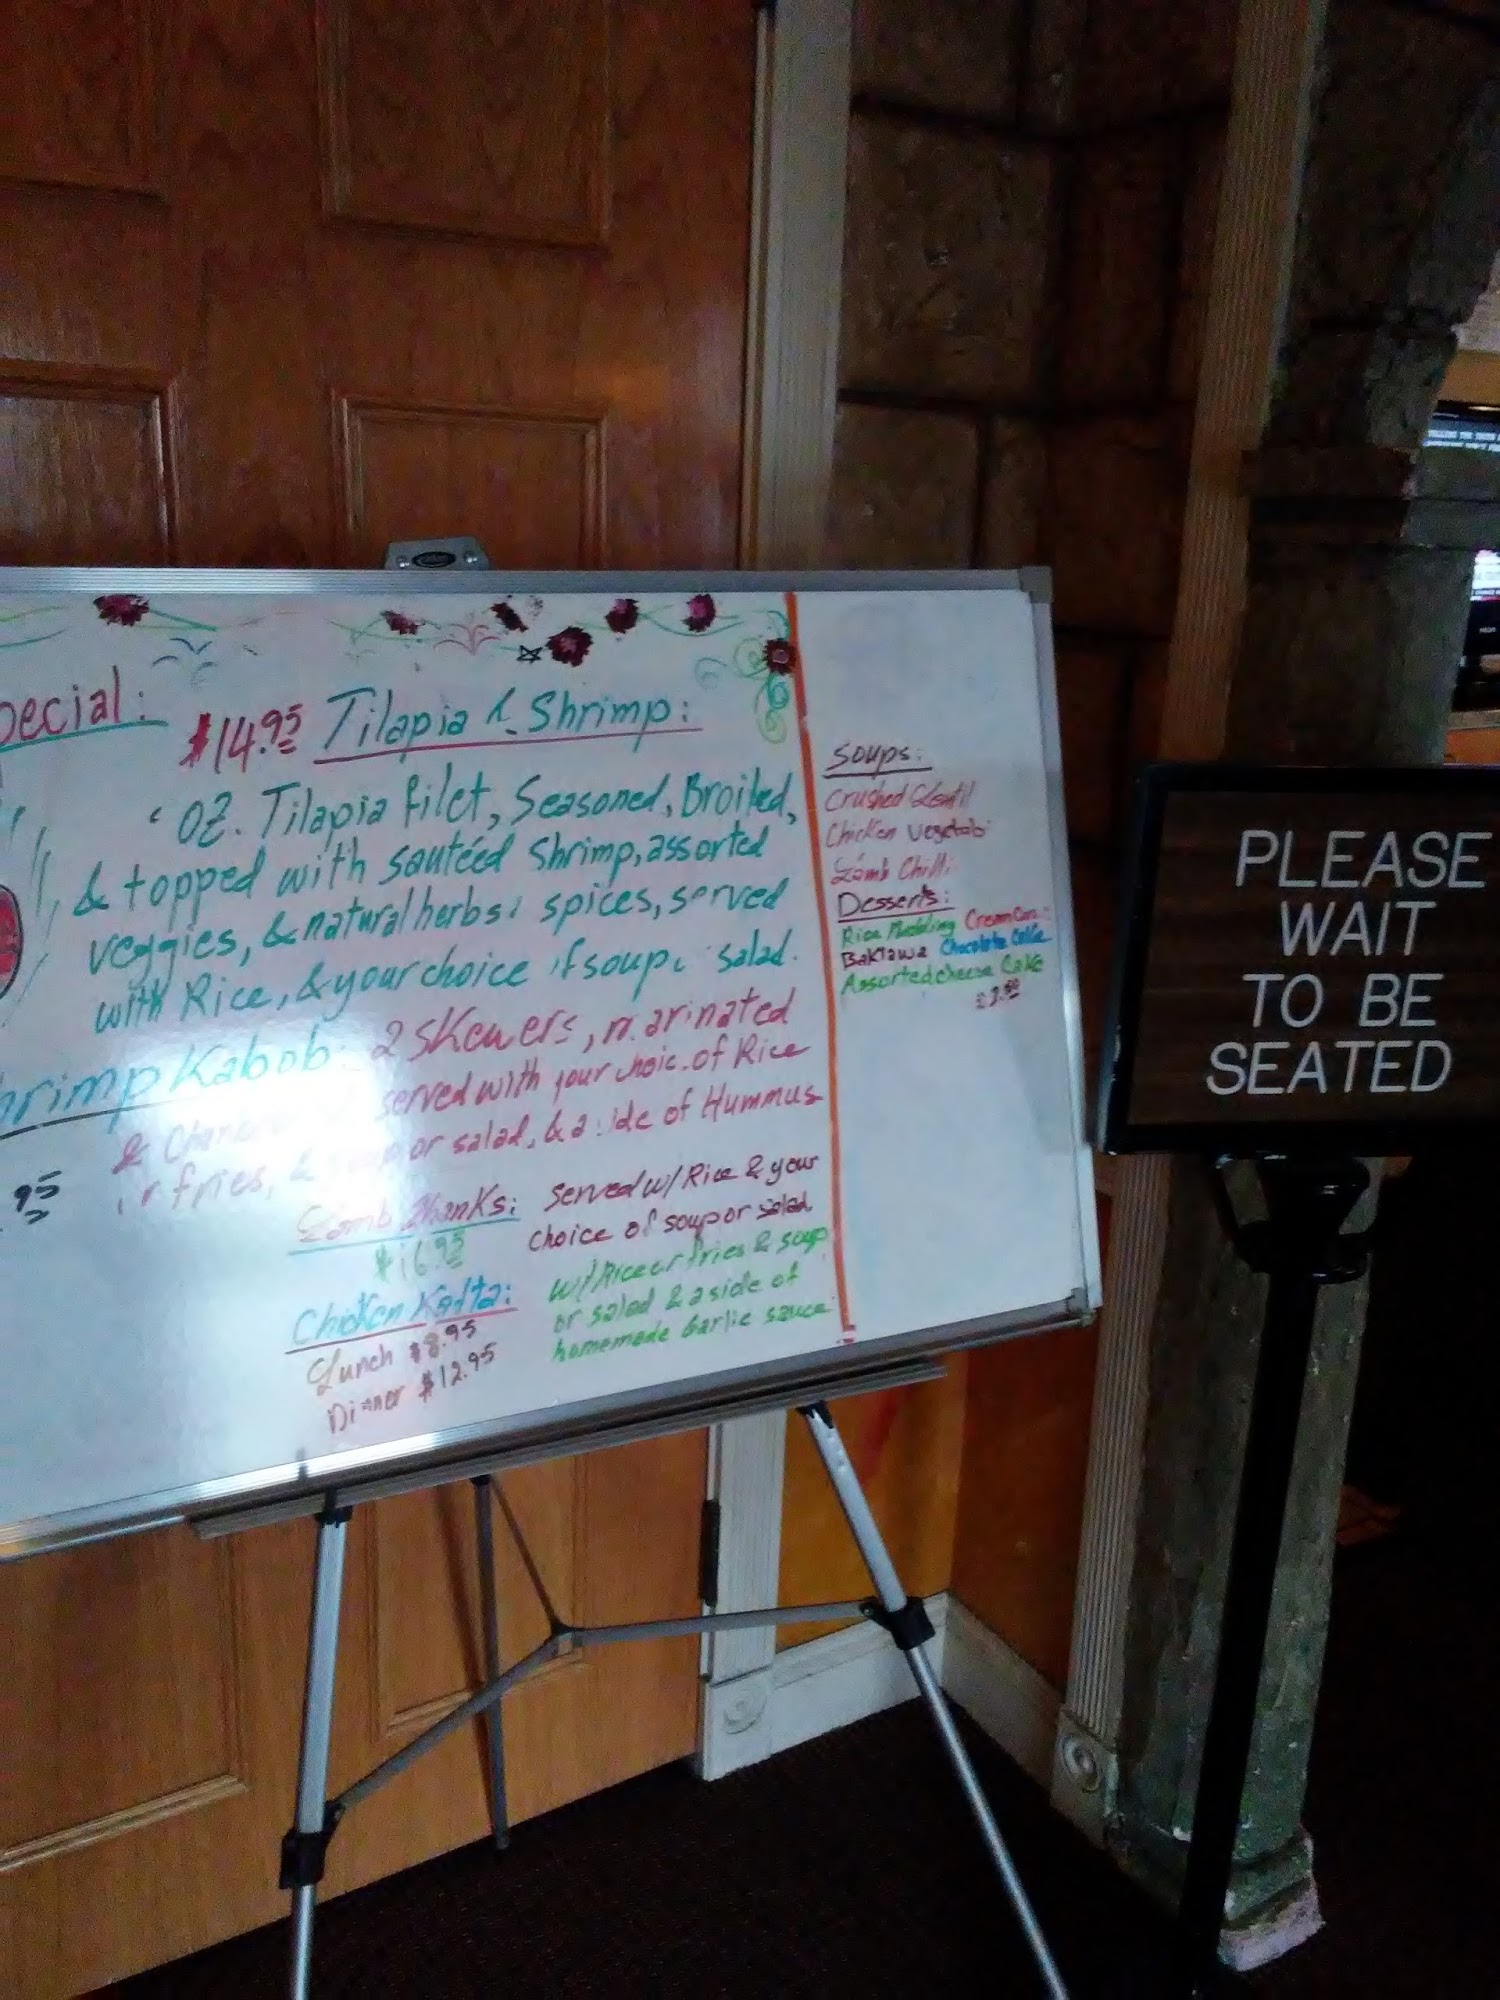 pecial:
$14.95 Tilapia & Shrimp:
OZ. Tilapia filet, Seasoned, Broiled,
& topped with sautéed Shrimp, assorted
veggies, & natural herbs & spices, served
with Rice, & your choice of soup salad.
hrimp Kabob: 2 skewers, marinated
& served with your choic. of Rice
r fries, & soup or salad, & a side of Hummus
.95
Lamb Shanks: Served w/ Rice & your
$16.95 choice of soup or salad
Chicken Kafta: w/ Rice or fries & soup
Lunch $8.95 or salad & a side of
Dinner $12.95 homemade Garlic sauce
Soups:
Crushed Lentil
Chicken Vegetabl
Lamb Chilli
Desserts:
Rice Pudding Cream
Baklawa Chocolate Cake
Assorted cheese Cake
PLEASE
WAIT
TO BE
SEATED